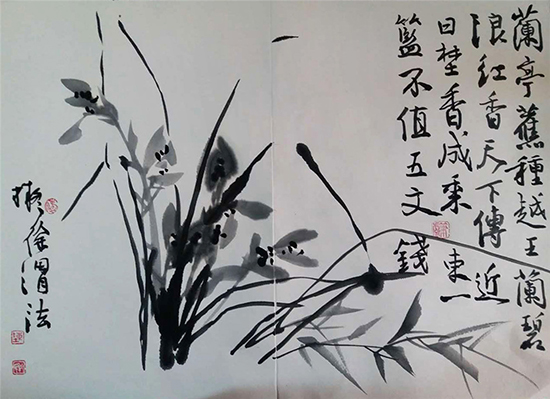 蘭亭舊種越王蘭碧
浪紅香天下傳近
日埜香成秉束一
籃不值五文錢
擬徐渭法